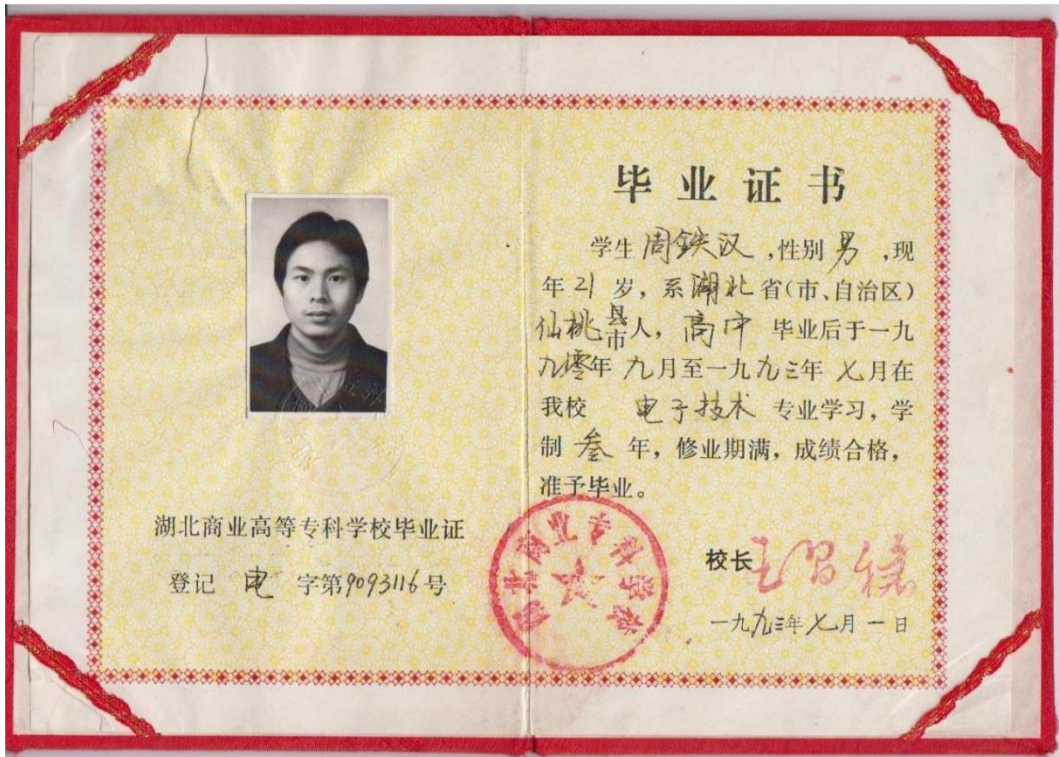 湖北商业高等专科学校毕业证
登记 电 字第9093116号
毕业证书
学生周铁汉,性别男,现
年21岁,系湖北省(市、自治区)
仙桃县市人,高中 毕业后于一九
九零年九月至一九九三年七月在
我校 电子技术 专业学习,学
制 叁 年,修业期满,成绩合格,
准予毕业。
校长
一九九三年七月一日
商业专科学校